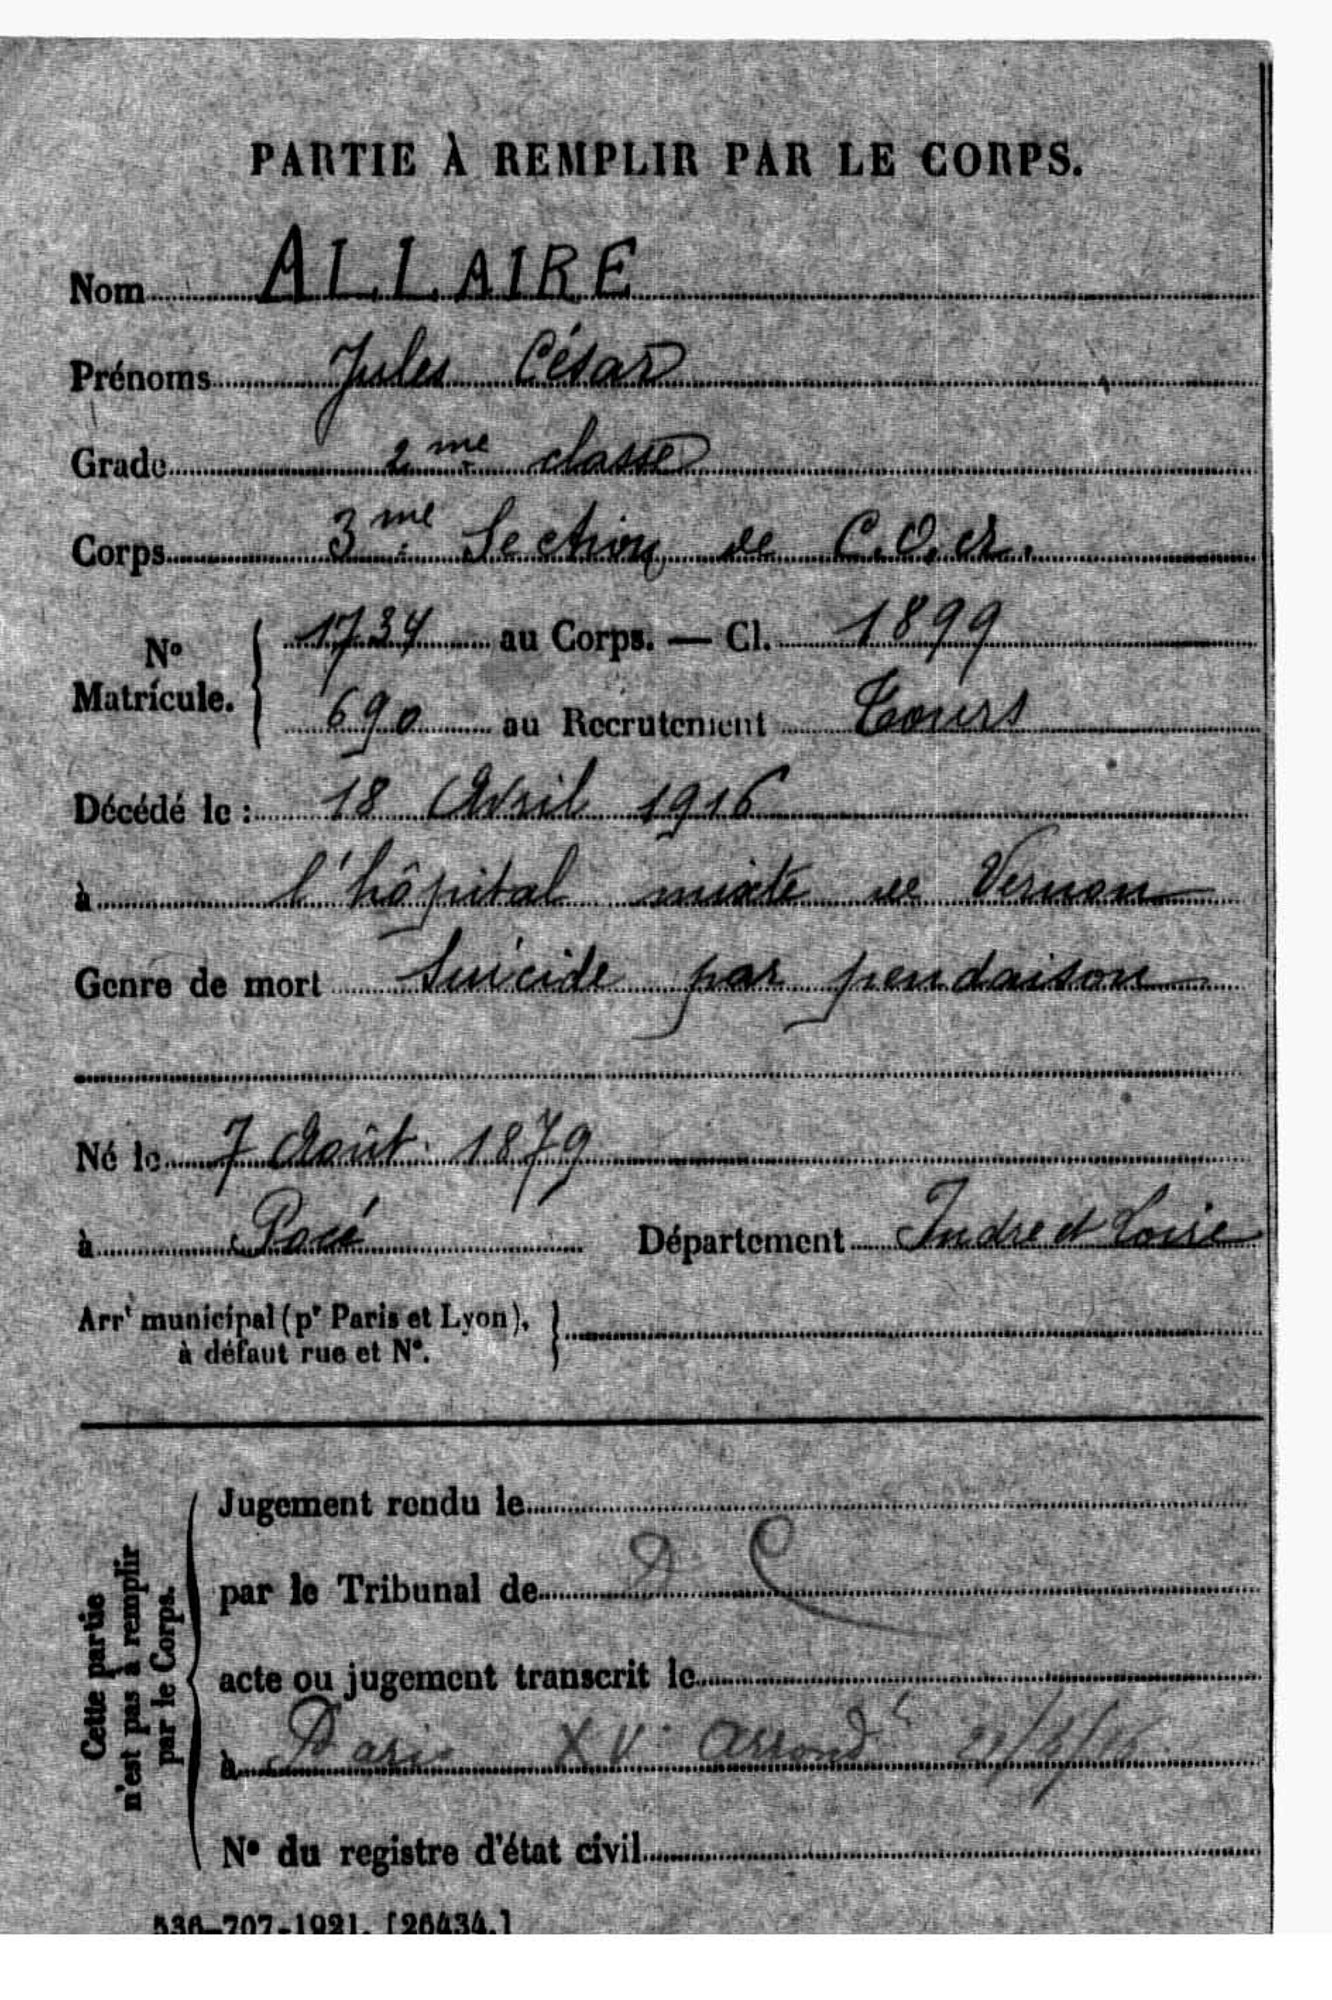 PARTIE À REMPLIR PAR LE CORPS.
Nom ALLAIRE
Prénoms Jules César
Grade 2me classe
Corps 3me Section de C.O.A.
No Matricule. { 1734 au Corps. — Cl. 1899
690 au Recrutement Tours
Décédé le : 18 Avril 1916
à l'hôpital mixte de Vernon
Genre de mort Suicide par pendaison
Né le 7 Août 1879
à Pocé Département Indre et Loire
Arrt municipal (pr Paris et Lyon), }
à défaut rue et No.
Cette partie
n'est pas à remplir
par le Corps.
Jugement rendu le
par le Tribunal de
acte ou jugement transcrit le
à Paris XV arrondt
No du registre d'état civil
536-707-1921. [26434.]